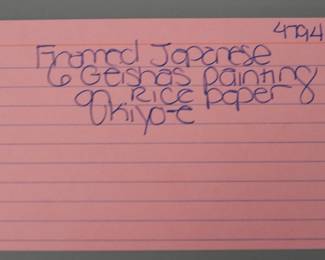 4794
Framed Japanese
6 Geishas Painting
on Rice paper
Ukiyo-e